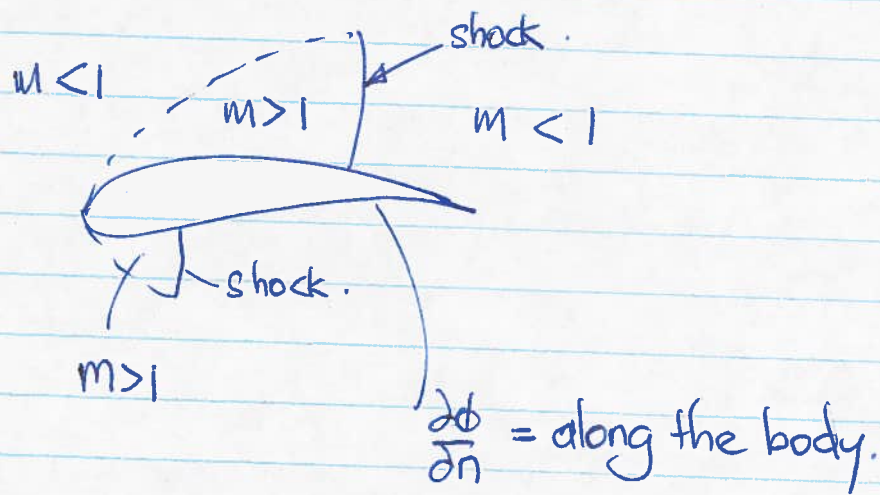 shock.
M < 1
M > 1
M < 1
shock.
M > 1
∂ϕ/∂n = along the body.